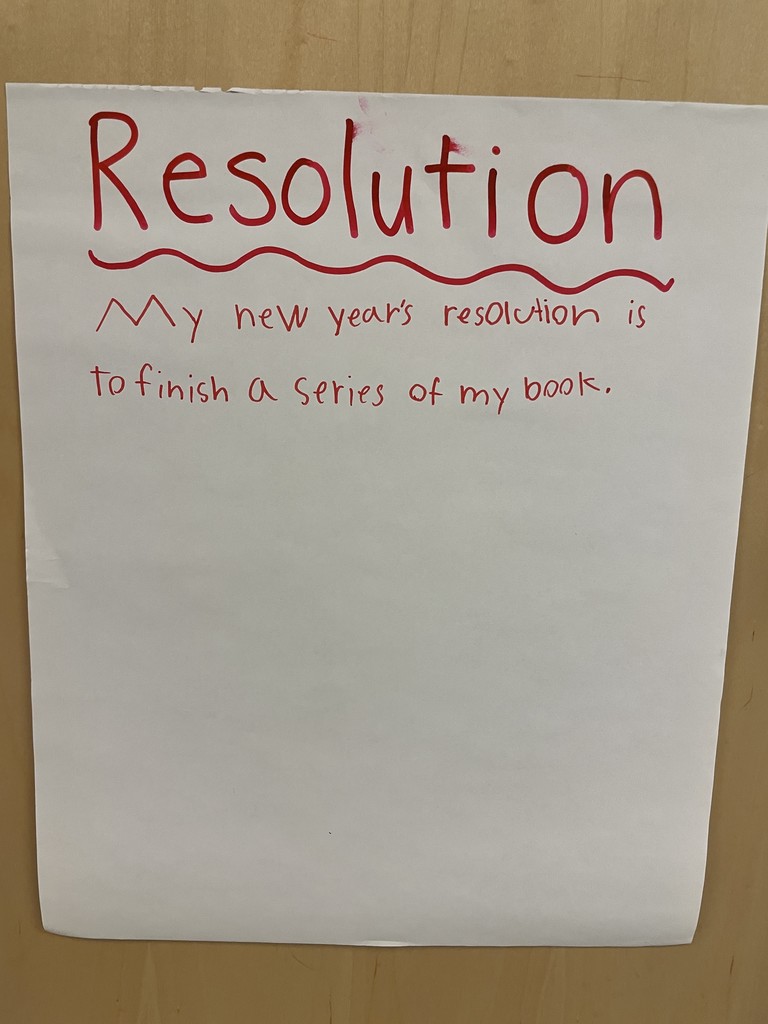 Resolution
My new year's resolution is
to finish a series of my book.